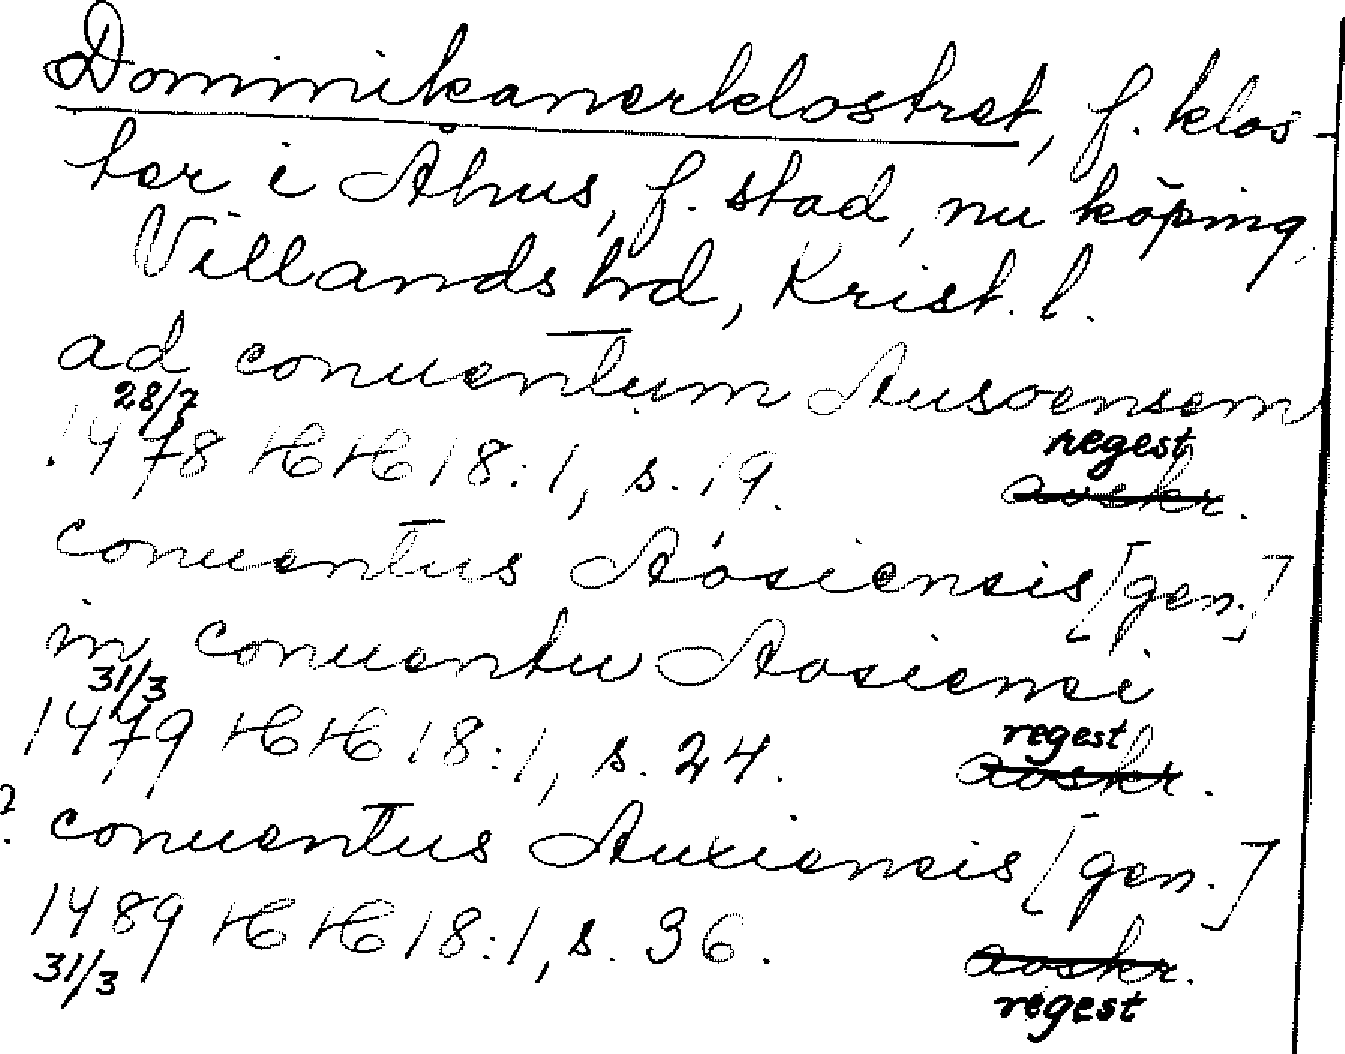 Dominikanerklostret, f. klos-
ter i Åhus, f. stad, nu köping,
Villands hd, Krist. l.
ad conuentum Ausoensem
28/7
1478 HH 18:1, s. 19. regest avskr.
conuentus Aosiensis [gen.]
in conuentu Aosiensi
31/3
1479 HH 18:1, s. 24. regest avskr.
? conuentus Auxiensis [gen.]
1489 HH 18:1, s. 36. avskr.
31/3 regest